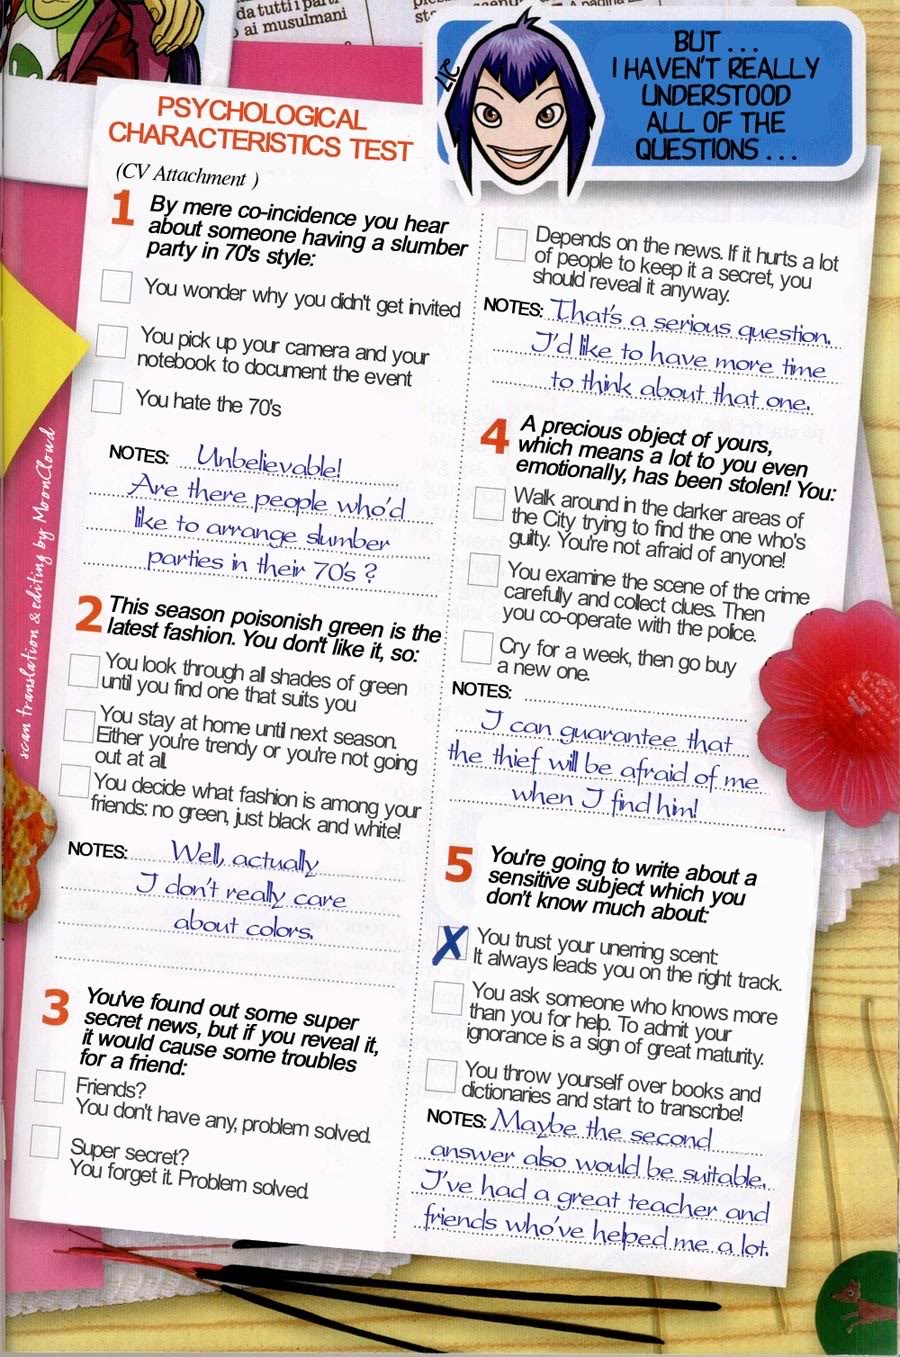 da tutti i parti
o ai musulmani
BUT . . .
I HAVEN'T REALLY
UNDERSTOOD
ALL OF THE
QUESTIONS . . .
PSYCHOLOGICAL
CHARACTERISTICS TEST
(CV Attachment )
1 By mere co-incidence you hear
about someone having a slumber
party in 70's style:
You wonder why you didn't get invited
You pick up your camera and your
notebook to document the event
You hate the 70's
NOTES: Unbelievable!
Are there people who'd
like to arrange slumber
parties in their 70's ?
2 This season poisonish green is the
latest fashion. You don't like it, so:
You look through all shades of green
until you find one that suits you
You stay at home until next season.
Either you're trendy or you're not going
out at all.
You decide what fashion is among your
friends: no green, just black and white!
NOTES: Well, actually
I don't really care
about colors.
3 You've found out some super
secret news, but if you reveal it,
it would cause some troubles
for a friend:
Friends?
You don't have any, problem solved.
Super secret?
You forget it. Problem solved.
Depends on the news. If it hurts a lot
of people to keep it a secret, you
should reveal it anyway.
NOTES: That's a serious question.
I'd like to have more time
to think about that one.
4 A precious object of yours,
which means a lot to you even
emotionally, has been stolen! You:
Walk around in the darker areas of
the City trying to find the one who's
guilty. You're not afraid of anyone!
You examine the scene of the crime
carefully and collect clues. Then
you co-operate with the police.
Cry for a week, then go buy
a new one.
NOTES:
I can guarantee that
the thief will be afraid of me
when I find him!
5 You're going to write about a
sensitive subject which you
don't know much about:
X You trust your unerring scent:
It always leads you on the right track.
You ask someone who knows more
than you for help. To admit your
ignorance is a sign of great maturity.
You throw yourself over books and
dictionaries and start to transcribe!
NOTES: Maybe the second
answer also would be suitable.
I've had a great teacher and
friends who've helped me a lot.
scan translation & editing by MoonCloud